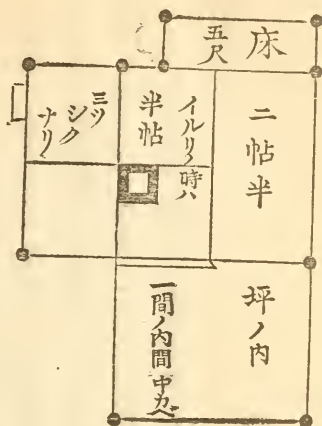 床
五尺
二帖半
イルリノ時ハ
半帖
三ツ
シク
ナリ
坪ノ内
一間ノ内間中カベ